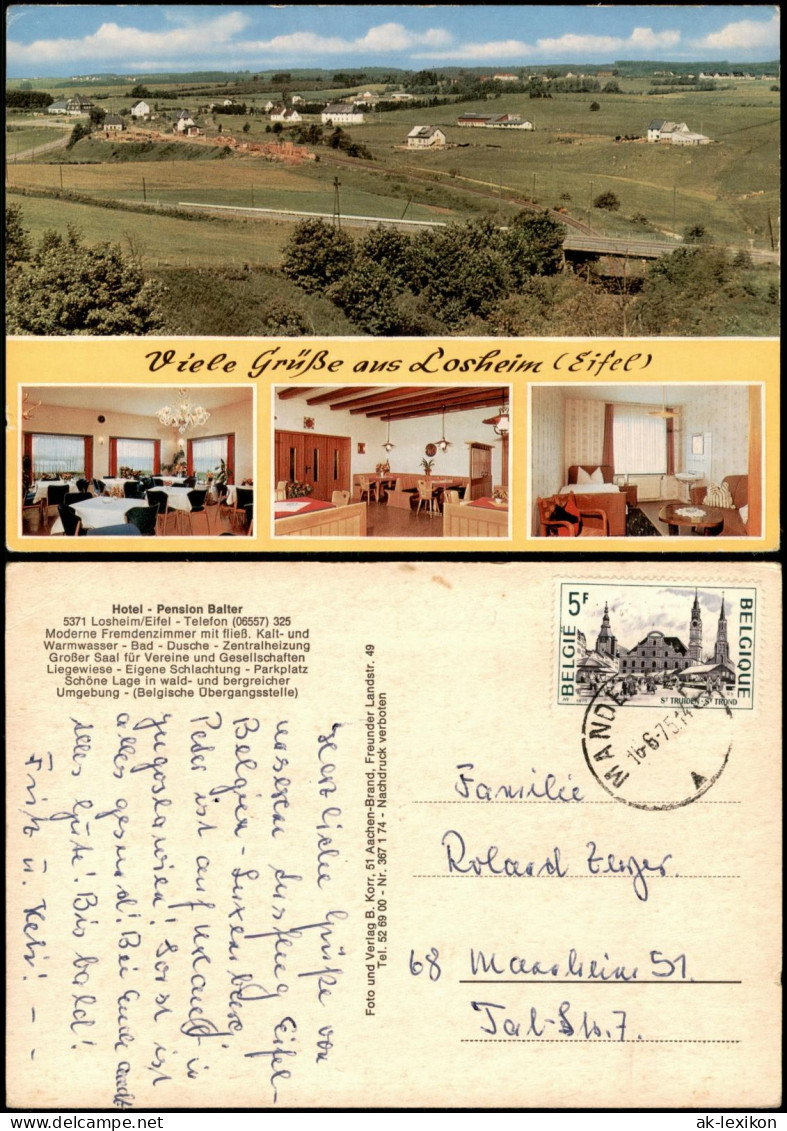 Viele Grüße aus Losheim (Eifel)
Hotel - Pension Balter
5371 Losheim/Eifel - Telefon (06557) 325
Moderne Fremdenzimmer mit fließ. Kalt- und
Warmwasser - Bad - Dusche - Zentralheizung
Großer Saal für Vereine und Gesellschaften
Liegewiese - Eigene Schlachtung - Parkplatz
Schöne Lage in wald- und bergreicher
Umgebung - (Belgische Übergangsstelle)
Herzliche Grüße von
unserem Ausflug Eifel-
Belgien - Luxemburg!
Peter ist auf Urlaub in
Jugoslawien! Sonst ist
alles gesund! Bei Euch auch?
Alles Gute! Bis bald!
Fritz u. Keti! - -
Foto und Verlag B. Korr, 51 Aachen-Brand, Freunder Landstr. 49
Tel. 52 69 00 - Nr. 367 1 74 - Nachdruck verboten
5F
BELGIË
BELGIQUE
ST TRUIDEN - ST TROND
MANDE
16-6-75 14
Familie
Roland
68 Mannheim 51.
Tal-Str. 7.
ak-lexikon